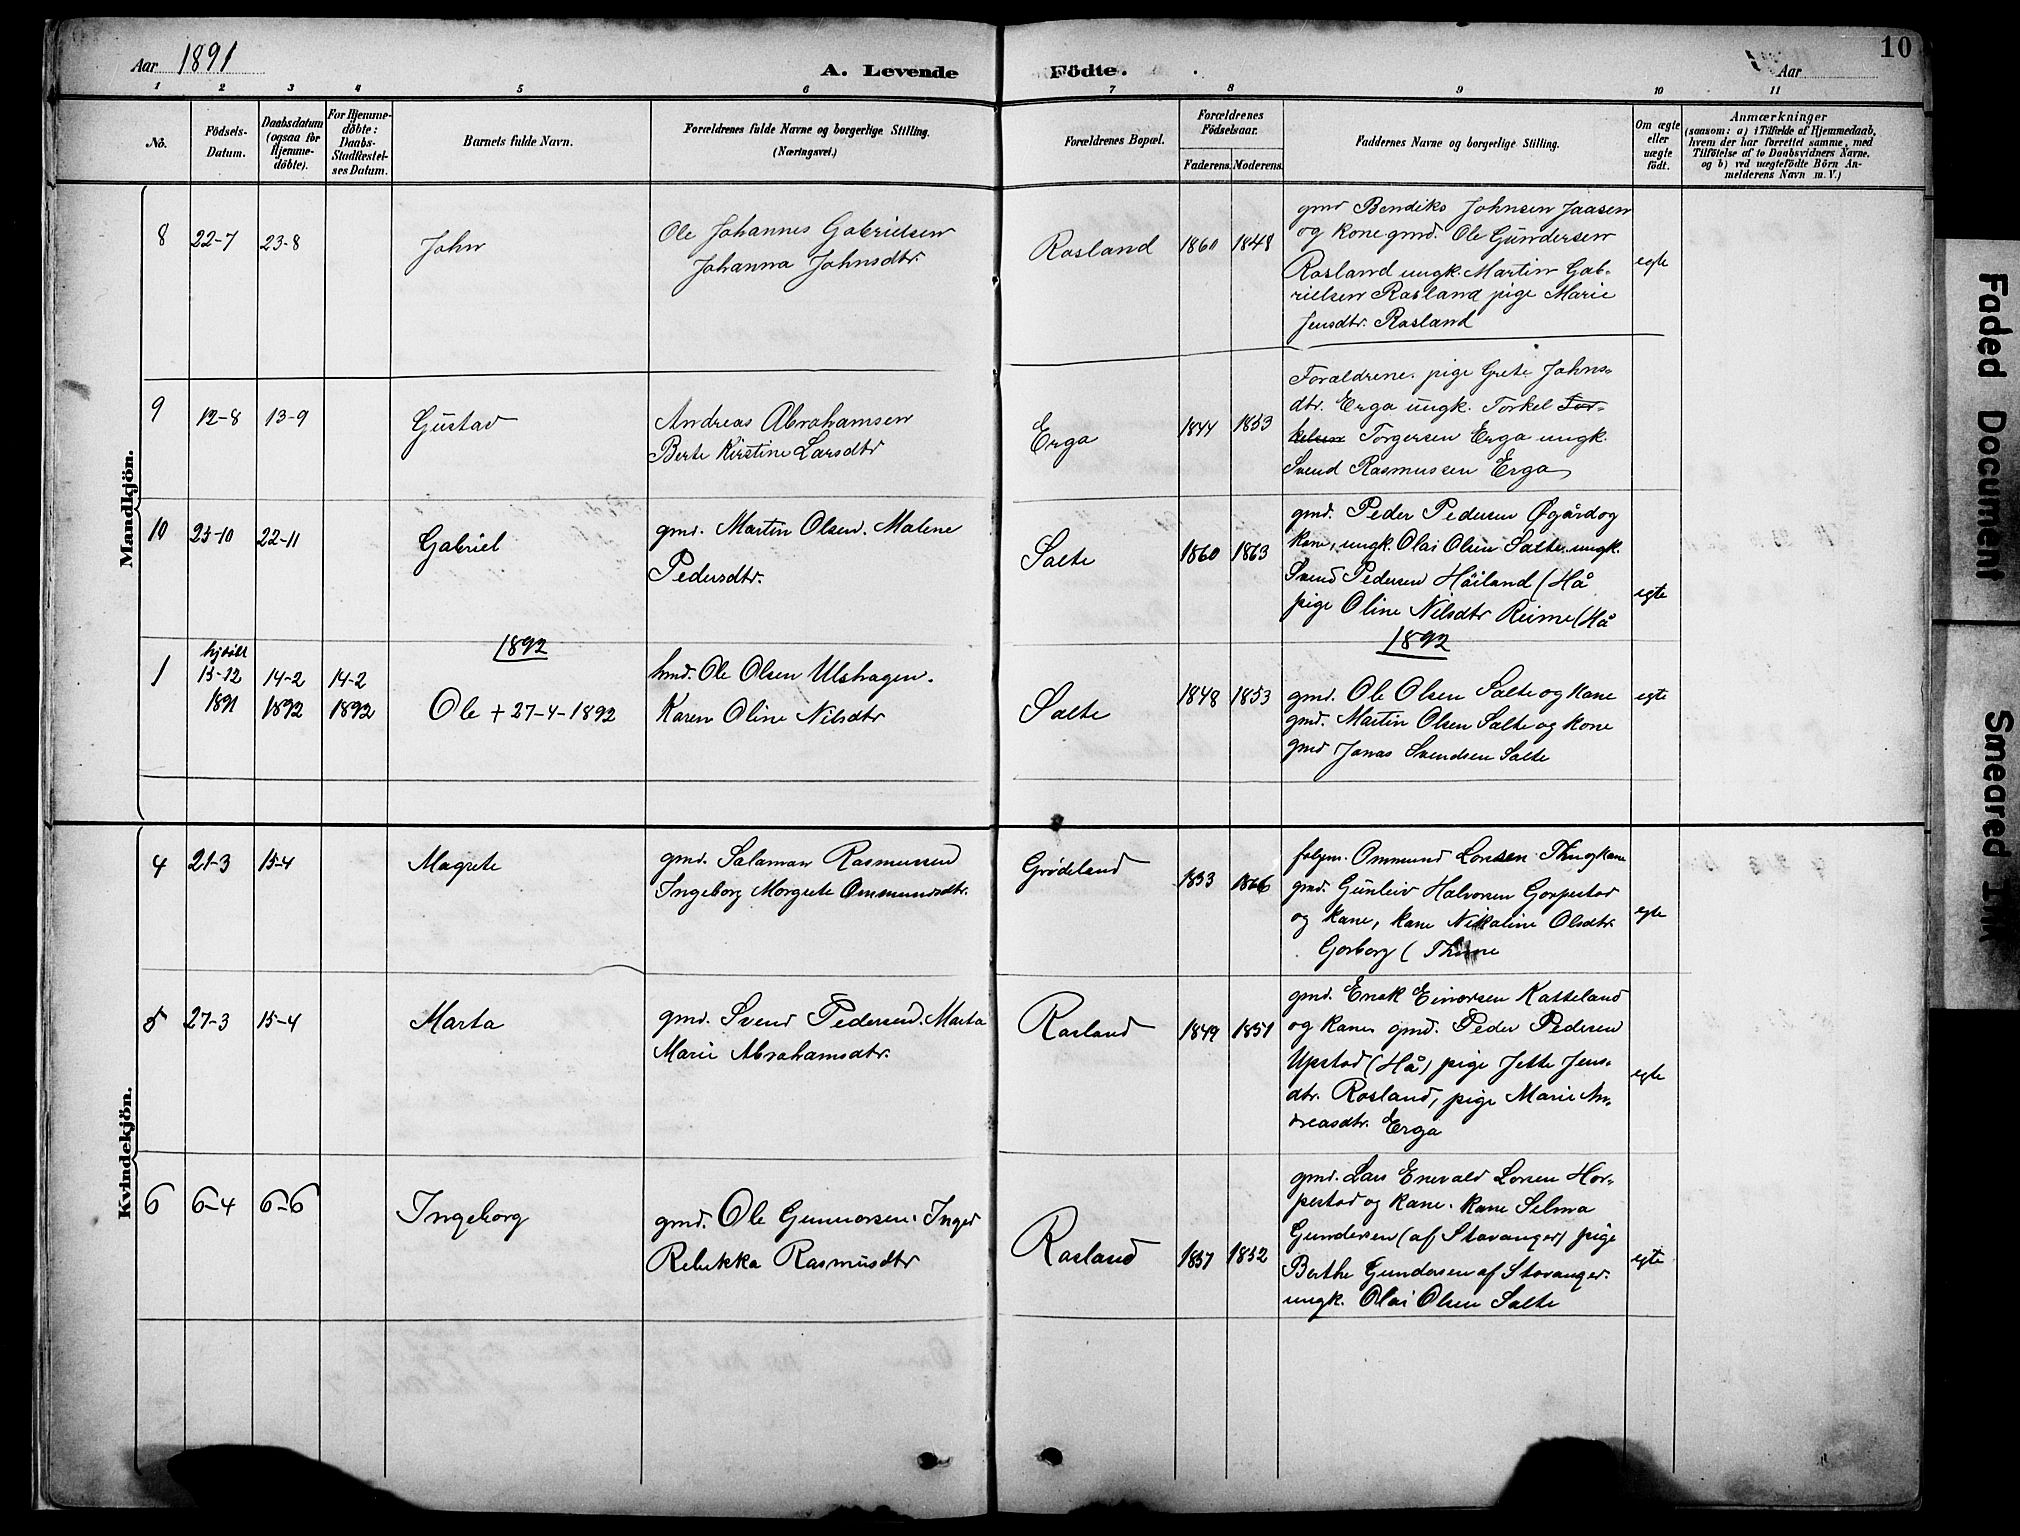 Aar 1891
A. Levende Födte.
Aar
10
1 2 3 4 5 6 7 8 9 10 11
No.
Födsels-
Datum.
Daabsdatum
(ogsaa for
Hjemme-
döbte).
For Hjemme-
döbte:
Daabs-
Stadfæstel-
ses Datum.
Barnets fulde Navn.
Forældrenes fulde Navne og borgerlige Stilling.
(Næringsvei.)
Forældrenes Bopæl.
Forældrenes
Födselsaar.
Faderens. Moderens.
Faddernes Navne og borgerlige Stilling.
Om ægte
eller
uægte
födt.
Anmærkninger
(saasom: a) i Tilfælde af Hjemmedaab,
hvem der har forrettet samme, med
Tilföielse af to Daabsvidners Navne,
og b) ved uægtefödte Börn An-
melderens Navn m. V.)
Mandkjön.
8 22-7 23-8 John
Ole Johannes Gabrielsen
Johanna Johnsdtr.
Rosland 1860 1848
gmd Bendiks Johnsen Jaasen
og kone gmd. Ole Gundersen
Rosland ungk. Martin Gab-
rielsen Rosland pige Marie
Jensdtr. Rosland
egte
9 12-8 13-9 Gustav
Andreas Abrahamsen
Berte Kirstine Larsdtr
Erga 1844 1853
Forældrene. pige Grete Johns-
dtr. Erga ungk. Torkel Tor-
kelsen Torgersen Erga ungk.
Svend Rasmussen Erga
10 25-10 22-11 Gabriel
gmd. Martin Olsen. Malene
Pedersdtr.
Salte 1860 1863
gmd. Peder Pedersen Øgård og
kone, ungk. Olai Olsen Salte. ungk.
Svend Pedersen Häiland (Hå
pige Oline Nilsdtr Reime (Hå
egte
1892
1892
1
13-12
1891
14-2
1892
14-2
1892
Ole + 27-4-1892
hmd. Ole Olsen Ulshagen.
Karen Oline Nilsdtr
Salte 1848 1853
gmd. Ole Olsen Salte og kone
gmd. Martin Olsen Salte og kone
gmd Jonas Svendsen Salte
egte
Kvindekjön.
4 21-3 15-4 Magrete
gmd. Salamon Rasmussen
Ingeborg Morgrete Ommundsdtr.
Grødeland 1853 1866
Ommund
gmd. Gunleiv Halvorsen
og kone, kone Nikoline Olsdtr.
Gorborg ( Thime
egte
5 27-3 15-4 Marta
gmd. Svend Pedersen. Marta
Marie Abrahamsdtr.
Rosland 1849 1851
gmd. Enok Einarsen Katteland
og kone gmd. Peder Pedersen
Upstad (Hå) pige Jette Jens-
dtr. Rosland, pige Marie An-
dreasdtr. Erga
egte
6 6-4 6-6 Ingeborg
gmd. Ole Gunnarsen. Inger
Rebekka Rasmusdtr
Rosland 1857 1852
gmd. Lars Enevald Larsen Hor-
pestad og kone. kone Selma
Gundersen (af Stavanger) pige
Berthe Gundersen af Stavanger.
ungk. Olai Olsen Salte
egte
Faded Document
Smeared Ink